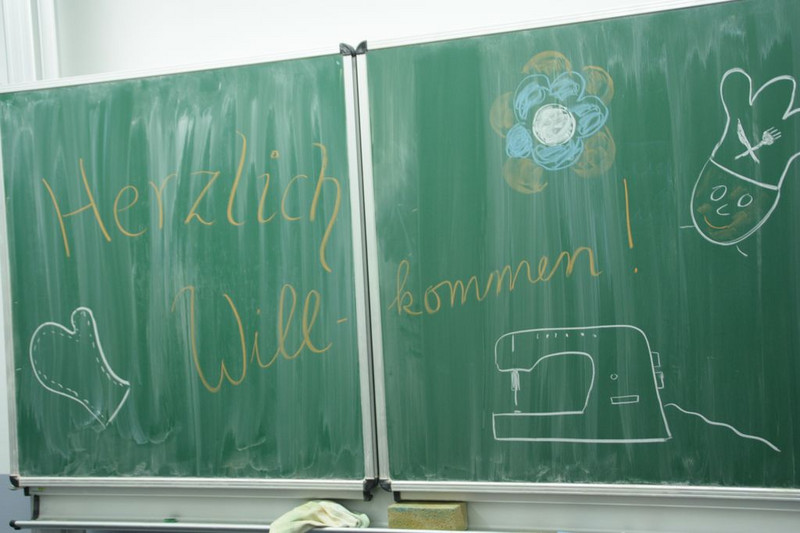 Herzlich
Will-kommen!